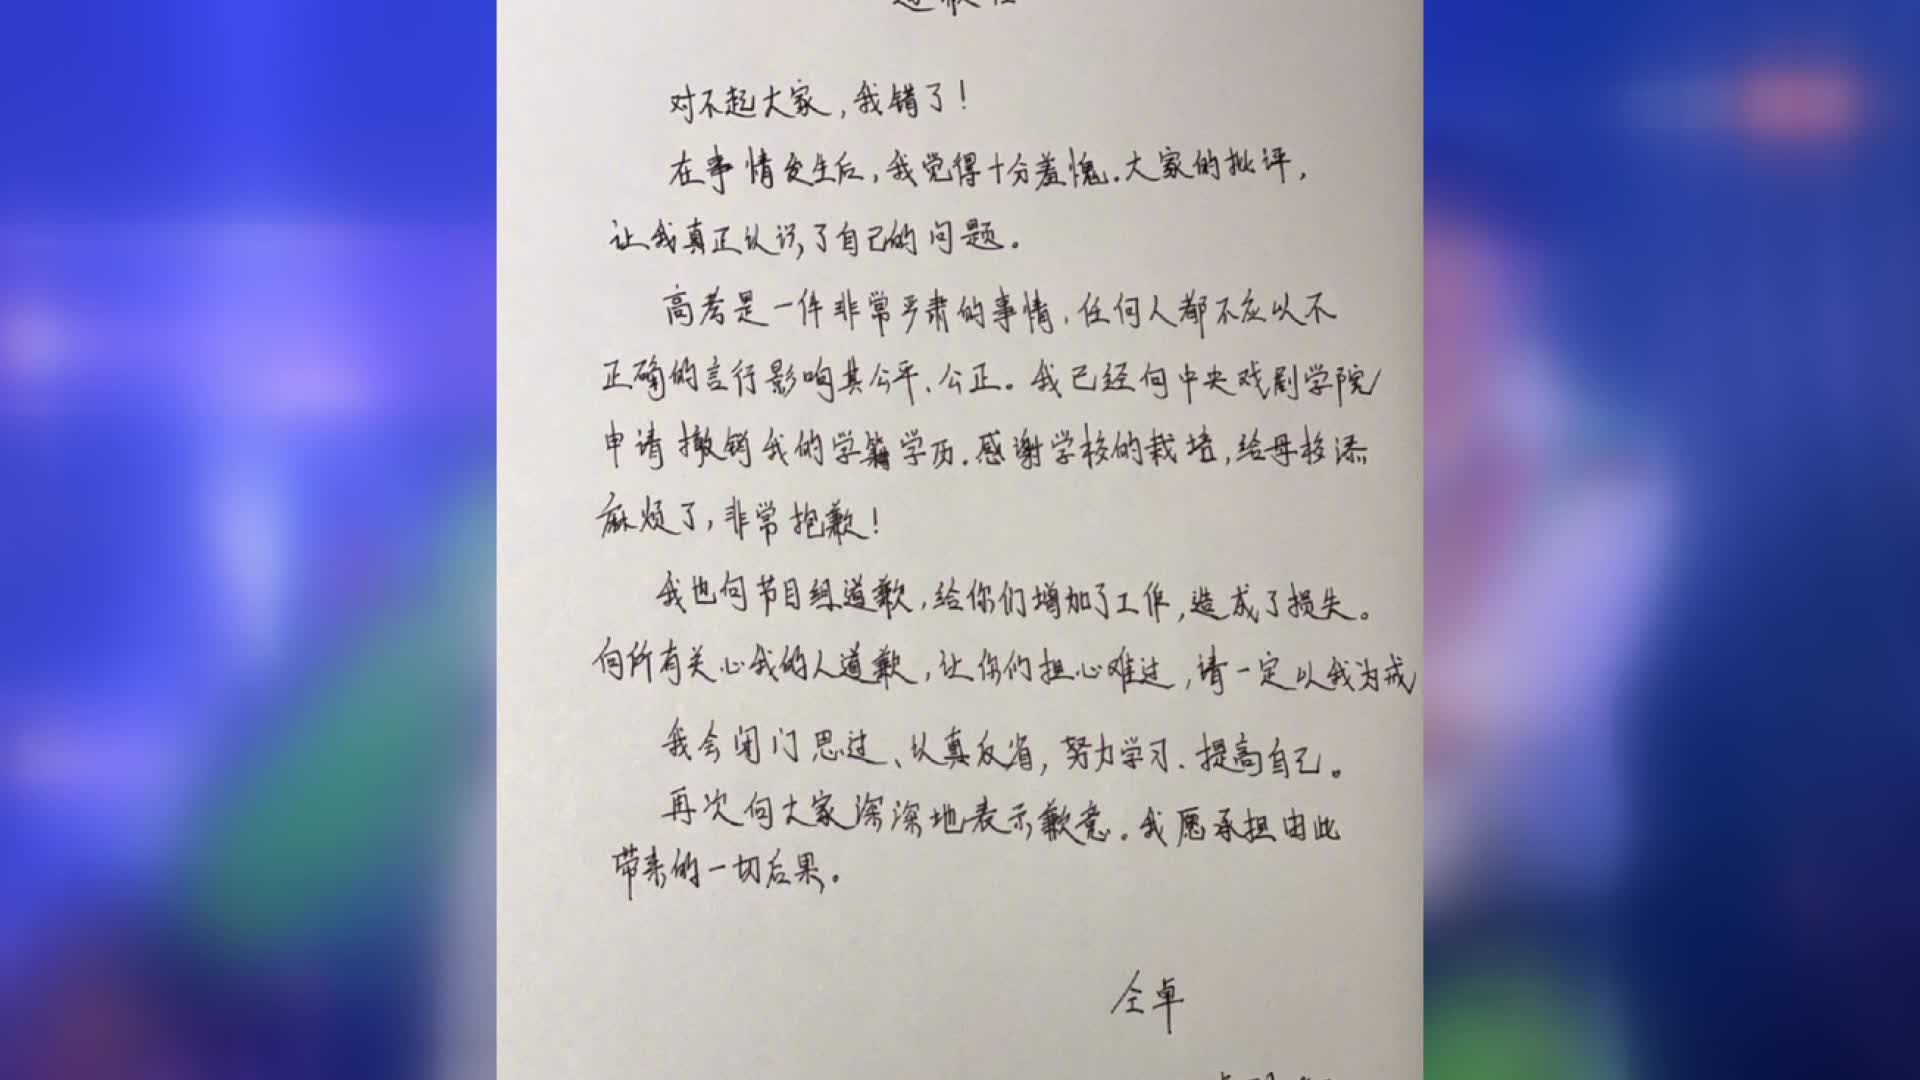 对不起大家，我错了！
在事情发生后，我觉得十分羞愧．大家的批评，
让我真正认识了自己的问题。
高考是一件非常严肃的事情，任何人都不应以不
正确的言行影响其公平、公正。我已经向中央戏剧学院
申请撤销我的学籍学历．感谢学校的栽培，给母校添
麻烦了，非常抱歉！
我也向节目组道歉，给你们增加了工作，造成了损失。
向所有关心我的人道歉，让你们担心难过，请一定以我为戒
我会闭门思过、认真反省，努力学习、提高自己。
再次向大家深深地表示歉意。我愿承担由此
带来的一切后果。
仝卓